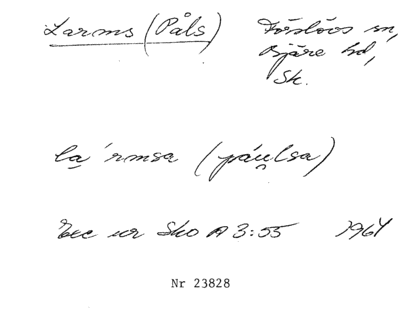 Larms (Påls) Förslövs sn,
Bjäre hd,
Sk.
la̱'rmsa (páu̯lsa)
Exc ur Sko A 3:55 1964
Nr 23828